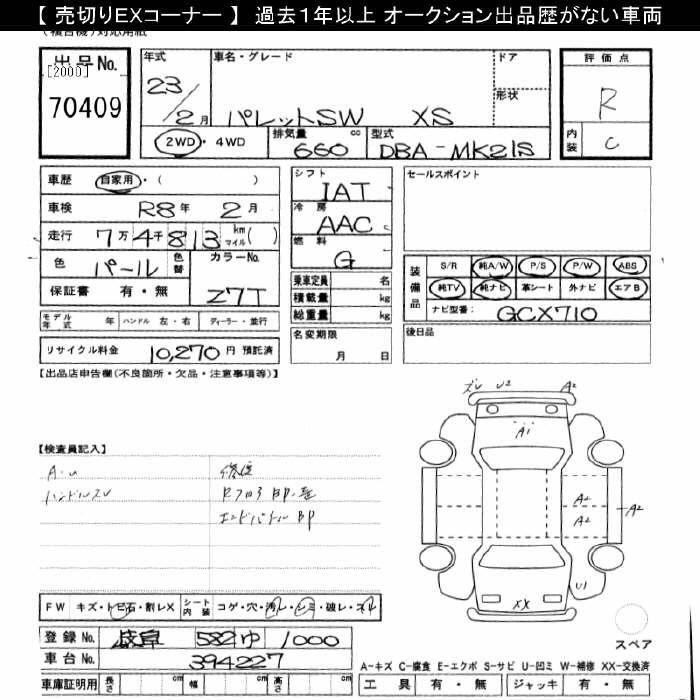 【 売切りEXコーナー 】 過去1年以上 オークション出品歴がない車両
出品No.
[2000]
70409
年式
23/2月
車名・グレード
パレットSW XS
ドア
形状
評価点
R
内装
C
2WD・4WD
排気量 660 cc
型式 DBA-MK21S
車歴 自家用・( )
車検 R8年 2月
走行 7万4千813 km マイル( )
色 パール 色替
カラーNo.
Z7T
保証書 有・無
モデル年式 年 ハンドル 左・右 ディーラー・並行
リサイクル料金 10,270 円 預託済
シフト
IAT
冷房
AAC
燃料
G
乗車定員 名
積載量 kg
総重量 kg
名変期限
月 日
セールスポイント
装備品
S/R 純A/W P/S P/W ABS
純TV 純ナビ 革シート 外ナビ エアB
ナビ型番: GCX710
後日品
【出品店申告欄(不良箇所・欠品・注意事項等)】
【検査員記入】
A・U
ハンドルスレ
修復
エンドパネルBP
ズレ U2 A2
A1
A2
A2
A2
U1
XX
スペア
FW キズ・トビ石・割レX シート内装 コゲ・穴・汚レ・シミ・破レ・スレ
登録No. 岐阜 582 ゆ 1000
車台No. 394227
車庫証明用 長さ cm 幅 cm 高さ cm
A-キズ C-腐食 E-エクボ S-サビ U-凹ミ W-補修 XX-交換済
工具 有・無 ジャッキ 有・無